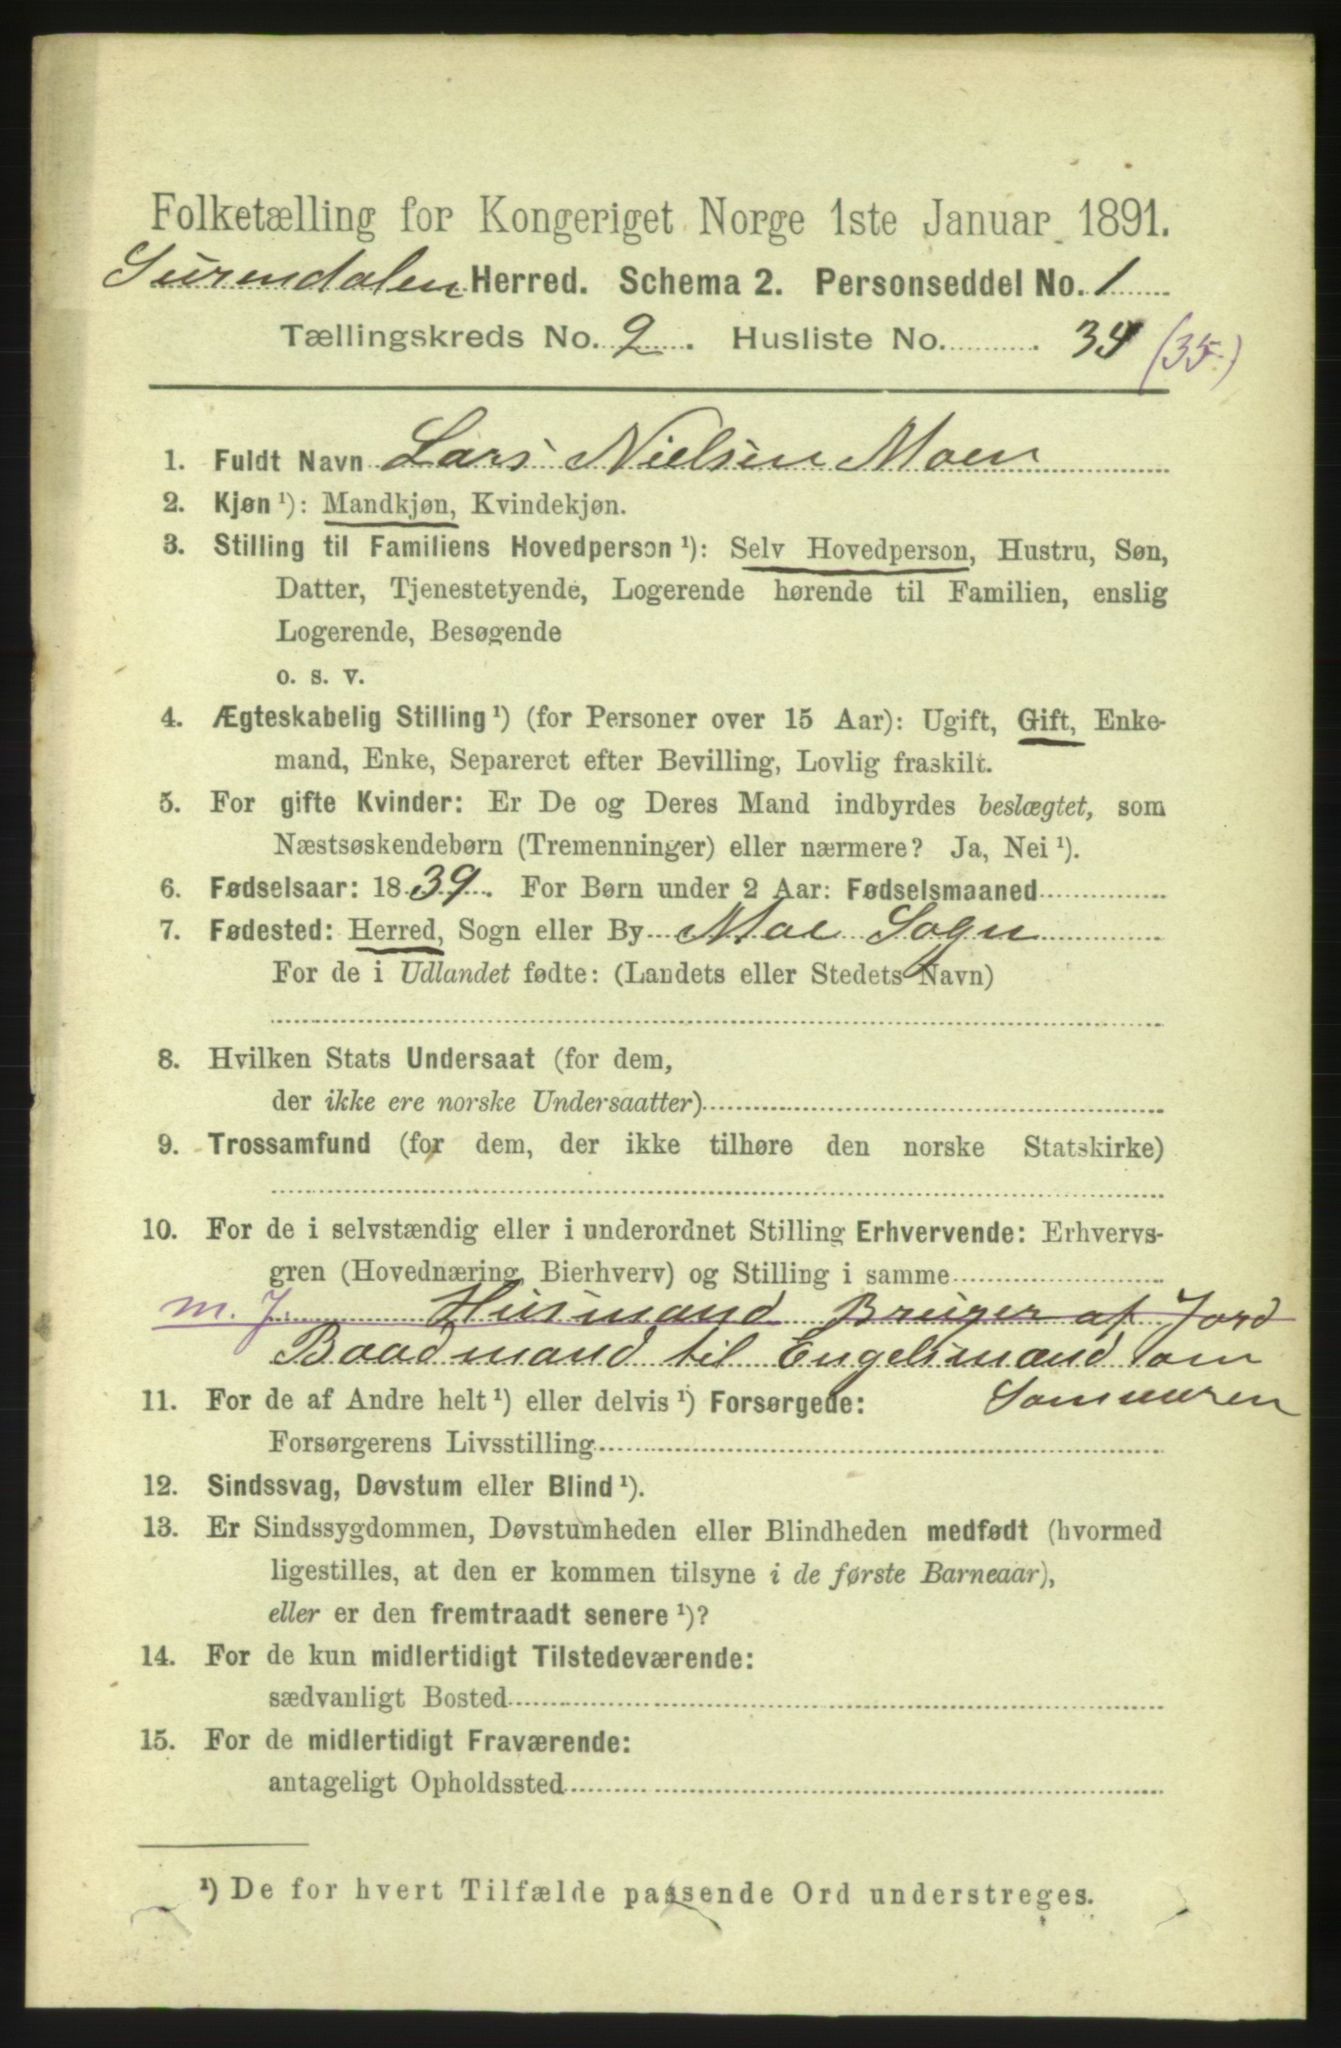 Folketælling for Kongeriget Norge 1ste Januar 1891.
Surendalen Herred. Schema 2. Personseddel No. 1
Tællingskreds No. 2. Husliste No. 34 (35.)
1. Fuldt Navn Lars Nielsen Moen
2. Kjøn ¹): Mandkjøn, Kvindekjøn.
3. Stilling til Familiens Hovedperson ¹): Selv Hovedperson, Hustru, Søn,
Datter, Tjenestetyende, Logerende hørende til Familien, enslig
Logerende, Besøgende
o. s. v.
4. Ægteskabelig Stilling ¹) (for Personer over 15 Aar): Ugift, Gift, Enke-
mand, Enke, Separeret efter Bevilling, Lovlig fraskilt.
5. For gifte Kvinder: Er De og Deres Mand indbyrdes beslægtet, som
Næstsøskendebørn (Tremenninger) eller nærmere? Ja, Nei ¹).
6. Fødselsaar: 1839. For Børn under 2 Aar: Fødselsmaaned
7. Fødested: Herred, Sogn eller By Moe Sogn
For de i Udlandet fødte: (Landets eller Stedets Navn)
8. Hvilken Stats Undersaat (for dem,
der ikke ere norske Undersaatter)
9. Trossamfund (for dem, der ikke tilhøre den norske Statskirke)
10. For de i selvstændig eller i underordnet Stilling Erhvervende: Erhvervs-
gren (Hovednæring, Bierhverv) og Stilling i samme
m. J. Husmand Bruger af Jord
Baadmand til Engelsmænd om
Sommeren
11. For de af Andre helt ¹) eller delvis ¹) Forsørgede:
Forsørgerens Livsstilling
12. Sindssvag, Døvstum eller Blind ¹).
13. Er Sindssygdommen, Døvstumheden eller Blindheden medfødt (hvormed
ligestilles, at den er kommen tilsyne i de første Barneaar),
eller er den fremtraadt senere ¹)?
14. For de kun midlertidigt Tilstedeværende:
sædvanligt Bosted
15. For de midlertidigt Fraværende:
antageligt Opholdssted
¹) De for hvert Tilfælde passende Ord understreges.